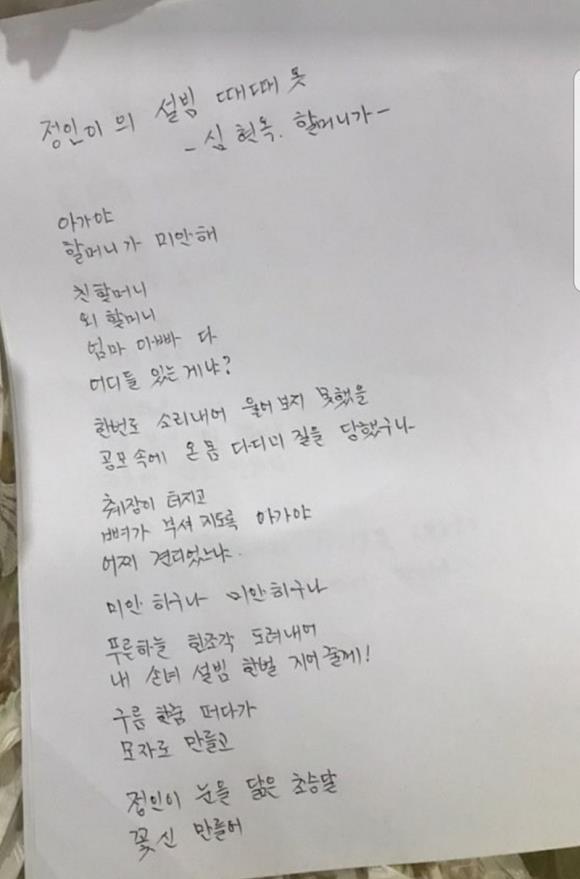 정인이의 설빔 때때옷
- 심현옥. 할머니가 -
아가야
할머니가 미안해
친할머니
외할머니
엄마 아빠 다
어디들 있는게냐?
한번도 소리내어 울어 보지 못했을
공포 속에 온 몸 다디미 질을 당했구나
췌장이 터지고
뼈가 부서 지도록 아가야
어찌 견디었느냐.
미안 하구나 미안하구나
푸른하늘 한조각 도려내어
내 손녀 설빔 한벌 지어줄께!
구름 한줌 떠다가
모자로 만들고
정인이 눈을 닮은 초승달
꽃신 만들어